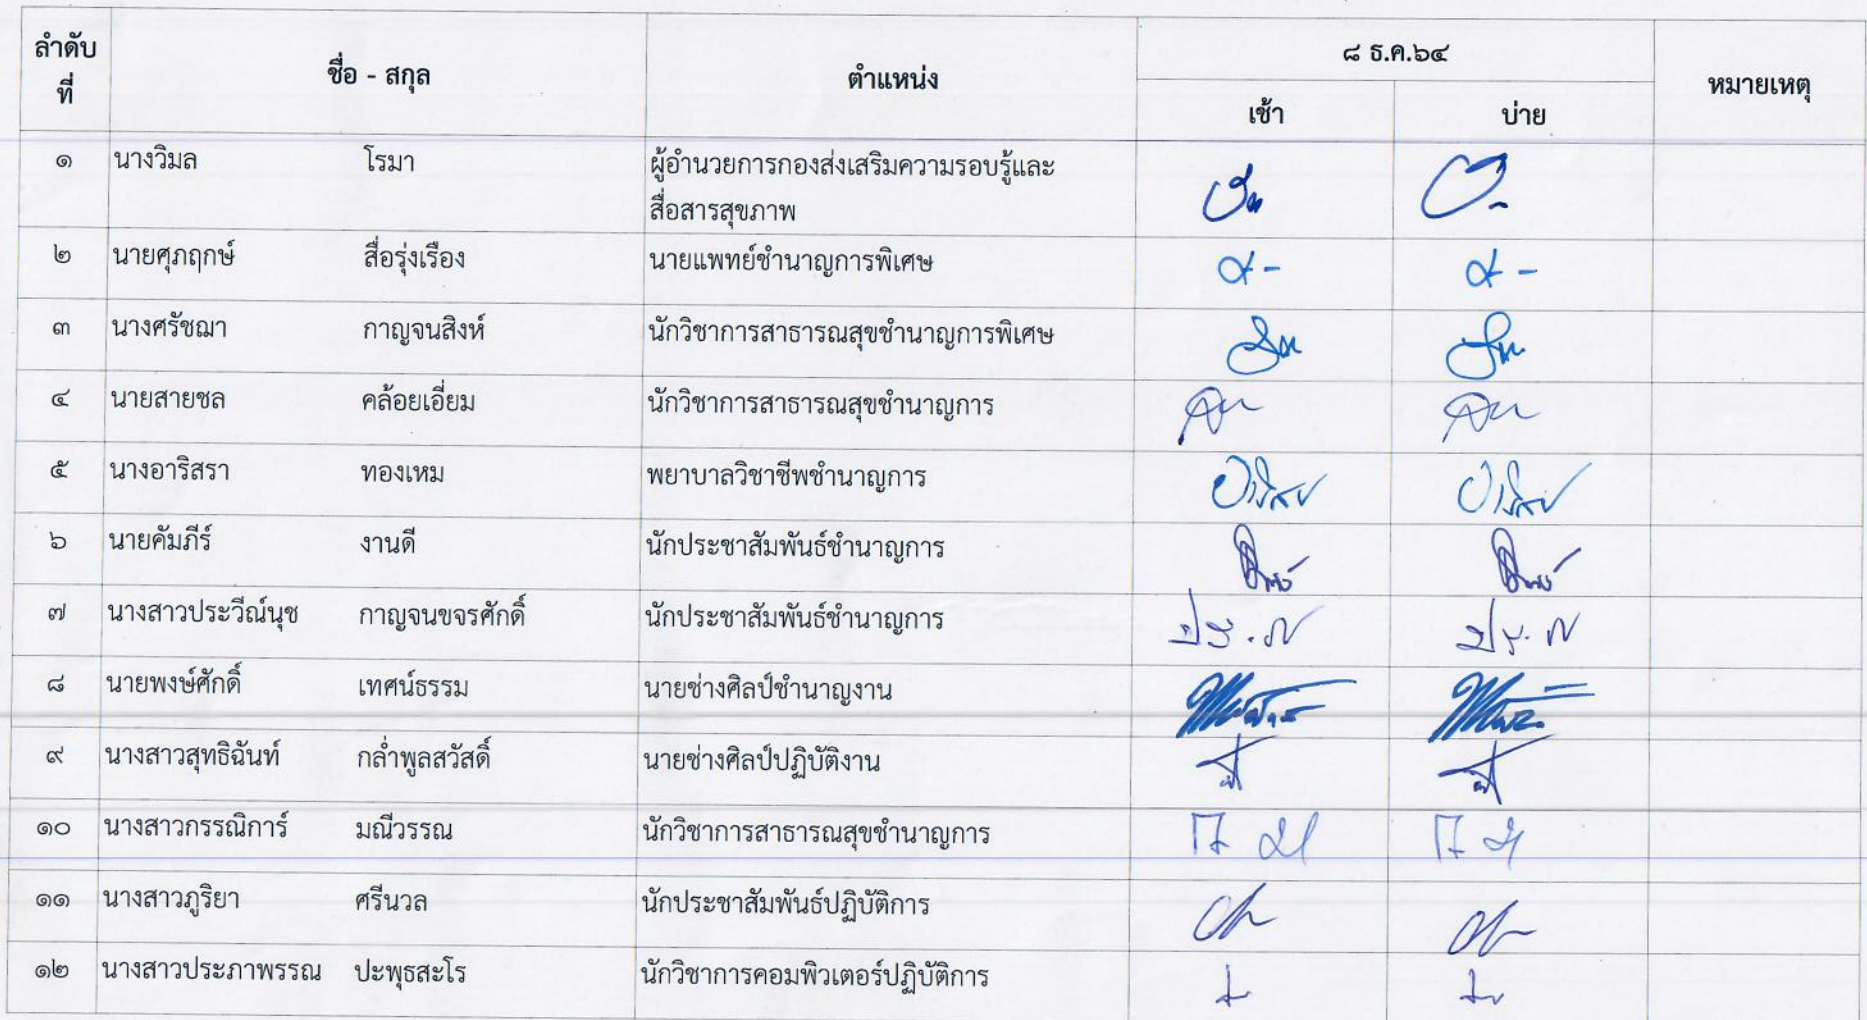 ลำดับที่ ชื่อ - สกุล ตำแหน่ง ๘ ธ.ค.๖๔ หมายเหตุ
เช้า บ่าย
๑ นางวิมล โรมา ผู้อำนวยการกองส่งเสริมความรอบรู้และ
สื่อสารสุขภาพ
๒ นายศุภฤกษ์ สื่อรุ่งเรือง นายแพทย์ชำนาญการพิเศษ
๓ นางศรัชฌา กาญจนสิงห์ นักวิชาการสาธารณสุขชำนาญการพิเศษ
๔ นายสายชล คล้อยเอี่ยม นักวิชาการสาธารณสุขชำนาญการ
๕ นางอาริสรา ทองเหม พยาบาลวิชาชีพชำนาญการ
๖ นายคัมภีร์ งานดี นักประชาสัมพันธ์ชำนาญการ
๗ นางสาวประวีณ์นุช กาญจนขจรศักดิ์ นักประชาสัมพันธ์ชำนาญการ
๘ นายพงษ์ศักดิ์ เทศน์ธรรม นายช่างศิลป์ชำนาญงาน
๙ นางสาวสุทธิฉันท์ กล่ำพูลสวัสดิ์ นายช่างศิลป์ปฏิบัติงาน
๑๐ นางสาวกรรณิการ์ มณีวรรณ นักวิชาการสาธารณสุขชำนาญการ
๑๑ นางสาวภูริยา ศรีนวล นักประชาสัมพันธ์ปฏิบัติการ
๑๒ นางสาวประภาพรรณ ปะพุธสะโร นักวิชาการคอมพิวเตอร์ปฏิบัติการ